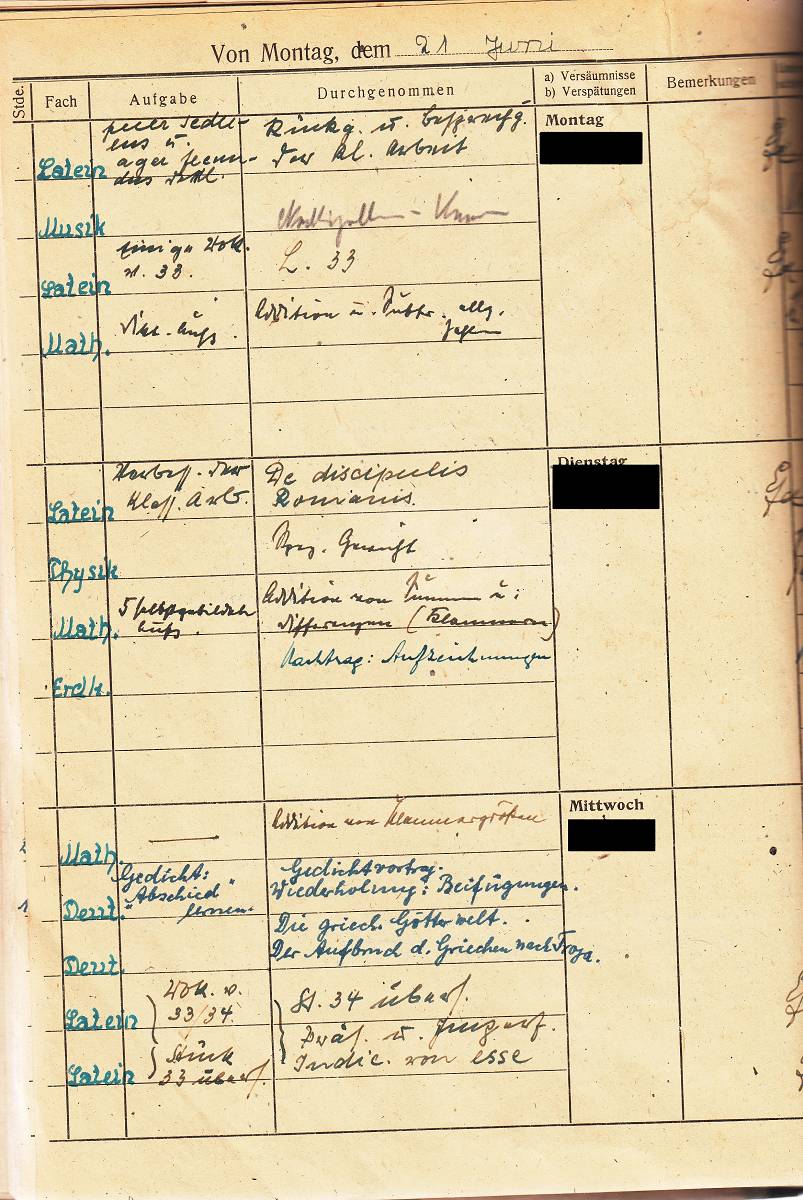 Von Montag, dem 21 Juni
Stde. Fach Aufgabe Durchgenommen a) Versäumnisse b) Verspätungen Bemerkungen
Montag
Latein
Rückg. u. Besprechg.
der Kl. Arbeit
Musik
Latein
einige Vok.
v. 33.
L. 33
Math.
Addition u. Subtr. allg.
Dienstag
Latein
Verbess. der
Klass. Arb.
De discipulis
Romanis.
Physik
Spez. Gewicht
Math.
5 selbstgebildete
Aufg.
Addition von Summen u.
Differenzen (Klammern)
Erdk.
Nachtrag: Aufzeichnungen
Mittwoch
Math.
Addition von Klammergrößen
Deut.
Gedicht:
"Abschied"
lernen.
Gedichtvortrag.
Wiederholung: Beifügungen.
Deut.
Die griech. Götterwelt.
Der Aufbruch d. Griechen nach Troja.
Latein
Vok. v.
33/34.
St. 34 übers.
Latein
Stück
33 übers.
Präs. u. Imperf.
Indic. von esse